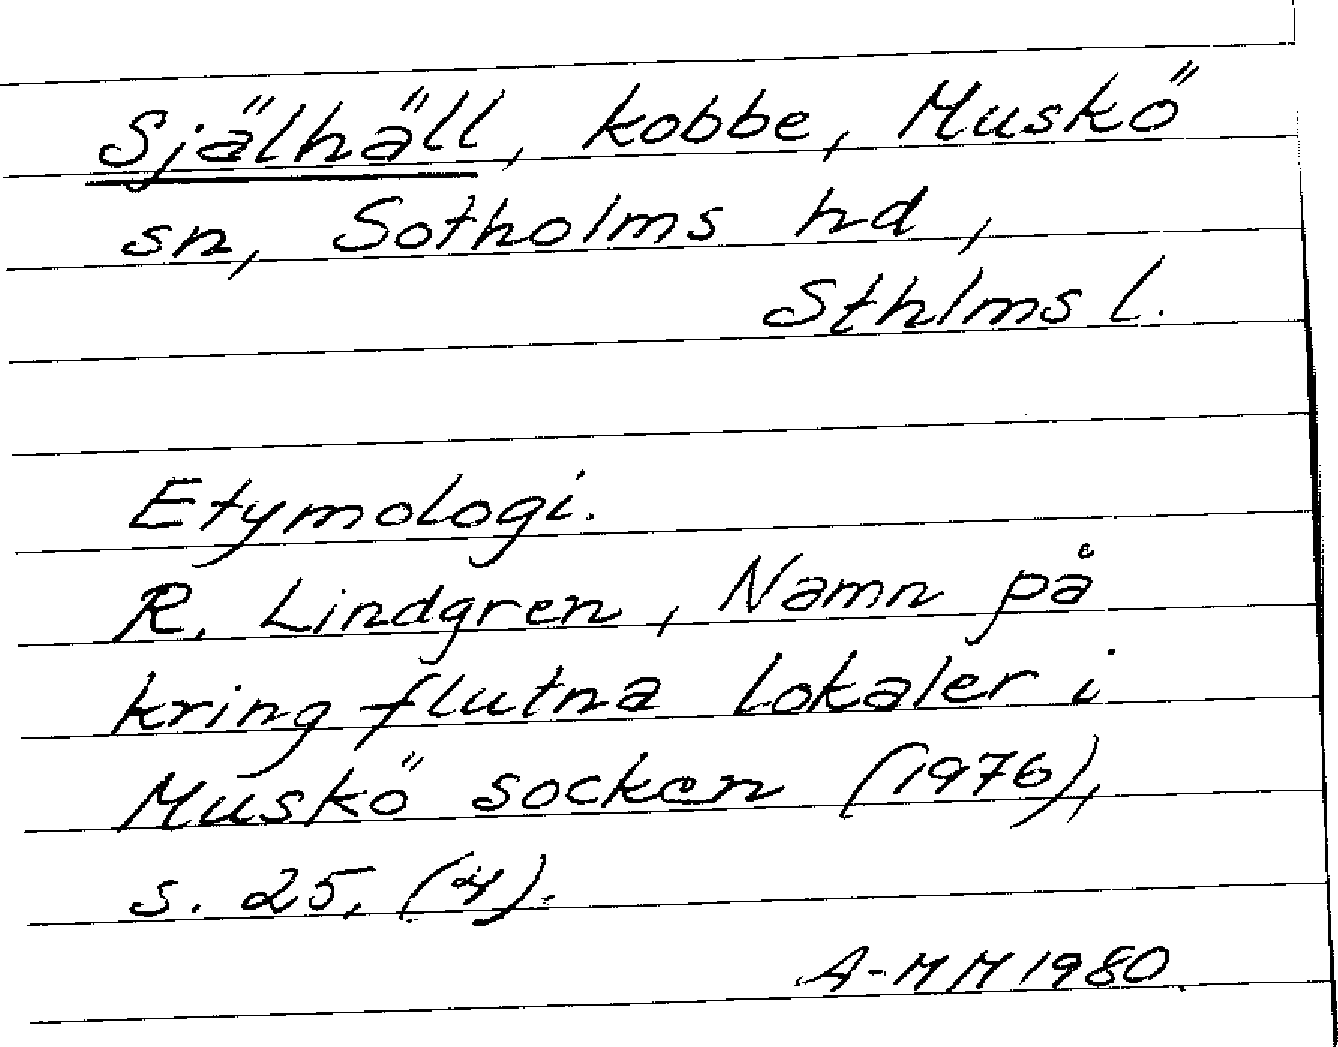 Själhäll, kobbe, Muskö
sn, Sotholms hd,
Sthlms l.
Etymologi.
R. Lindgren, Namn på
kringflutna lokaler i
Muskö socken (1976),
s. 25, (4).
A-MM 1980